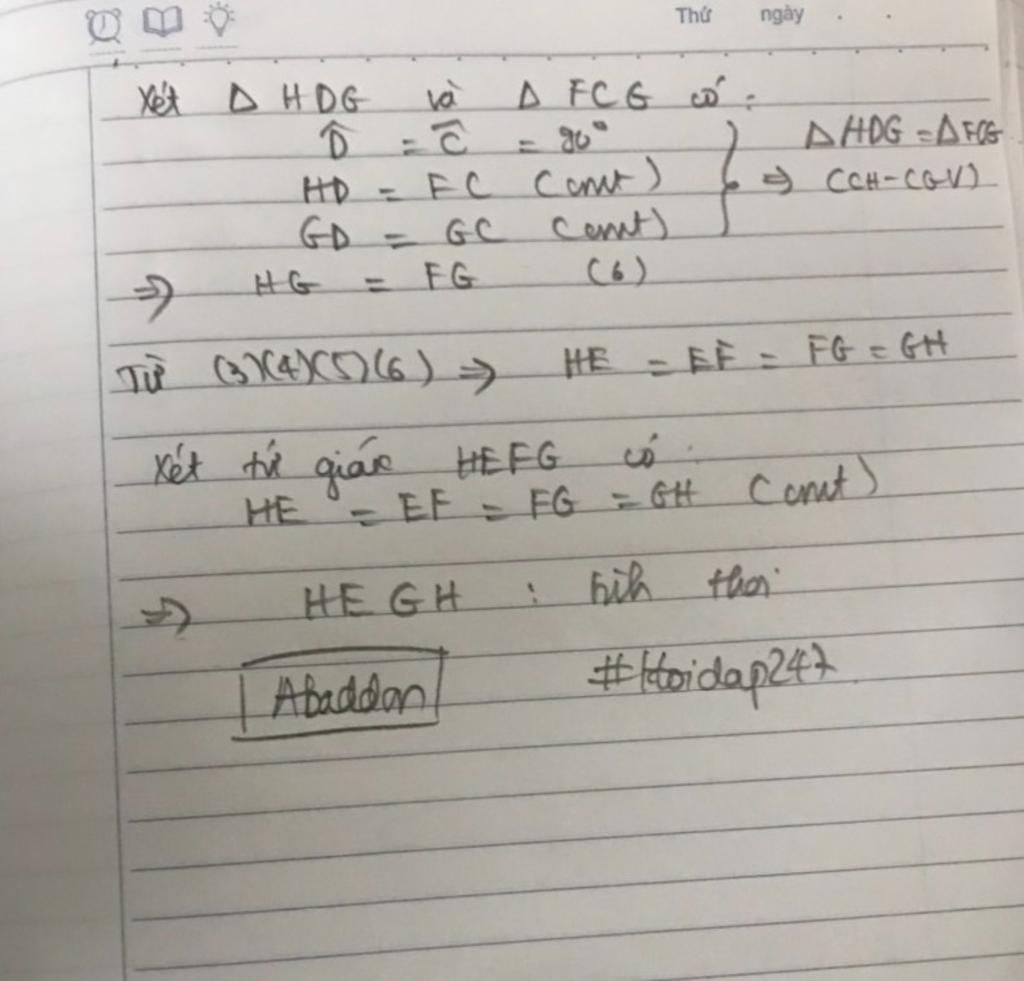 Thứ ngày . .
Xét Δ HDG và Δ FCG có :
D̂ = C̅ = 90°
HD = FC (cmt)
GD = GC (cmt)
} => ΔHDG = ΔFCG
(CH-CGV)
=> HG = FG (6)
Từ (3)(4)(5)(6) => HE = EF = FG = GH
Xét tứ giác HEFG có .
HE = EF = FG = GH (cmt)
=> HEGH : hìh thoi
Abaddon #Hoidap247